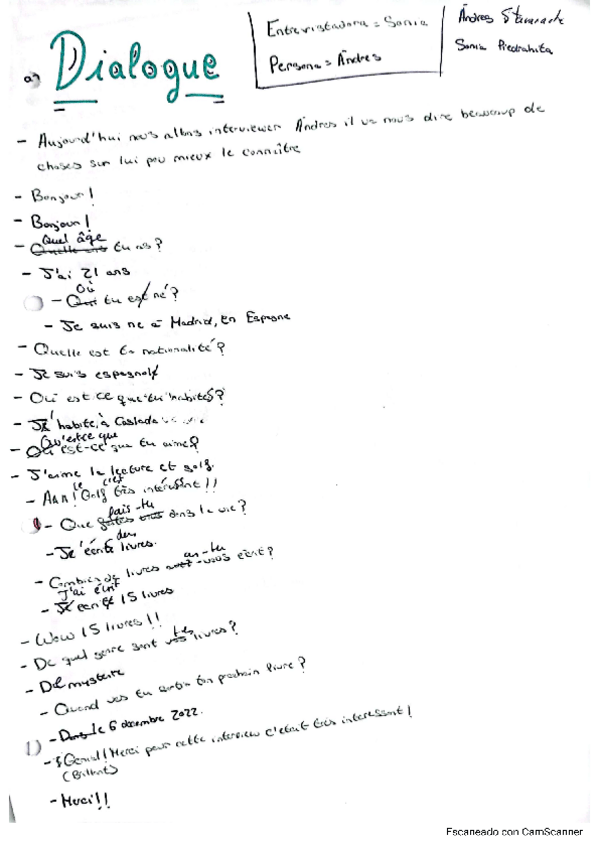 a) Dialogue
Entrevistadora = Sonia
Persona = Ándres
Ándres
Sonia Piedrahita
- Aujourd'hui nous allons interviewer Ándres il va nous dire beaucoup de
choses sur lui pou mieux le connaître
- Bonjour!
- Bonjour!
Quel âge
- Quelle ans tu as?
- J'ai 21 ans
Où
- Qui tu est né?
- Je suis ne à Madrid, en Espagne
- Quelle est ta nationalité?
- Je suis espagnol
- Où est ce que tu habites?
- J'habite, à Coslada
Qu'estce que
- Où est-ce que tu aime?
- J'aime la lecture et golf.
le c'est
- Aan! Golf très intéressant!!
fais-tu
- Que dans la vie?
des
- J'écrite livres.
as-tu
- Combien de livres avez-vous écrit?
J'ai écrit
- Je 15 livres
- Wow 15 livres!!
tes
- De quel genre sont vos livres?
- De mystère
- Quand vas tu sortir ton prochain livre?
- Dans le 6 décembre 2022.
1)
- Genial! Merci pour cette interview c'etait très interessant!
(Brillant)
- Merci!!
Escaneado con CamScanner